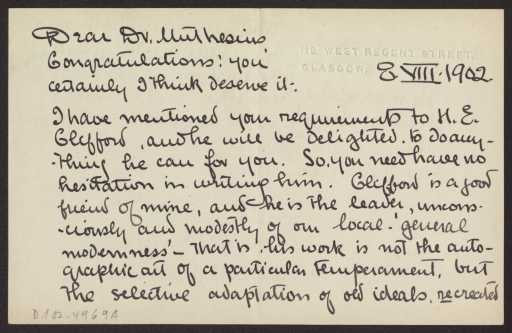 112 WEST REGENT STREET,
GLASGOW.
8 VIII. 1902
Dear Dr. Muthesius
Congratulations! you
certainly I think deserve it.
I have mentioned your requirements to H. E.
Clifford, and he will be delighted to do any-
-thing he can for you. So, you need have no
hesitation in writing him. Clifford is a good
friend of mine, and he is the leader, uncons-
-ciously and modestly of our local "general
modernness" – that is his work is not the auto-
graphic art of a particular temperament, but
the selective adaptation of old ideals, recreated
D 102-4969A